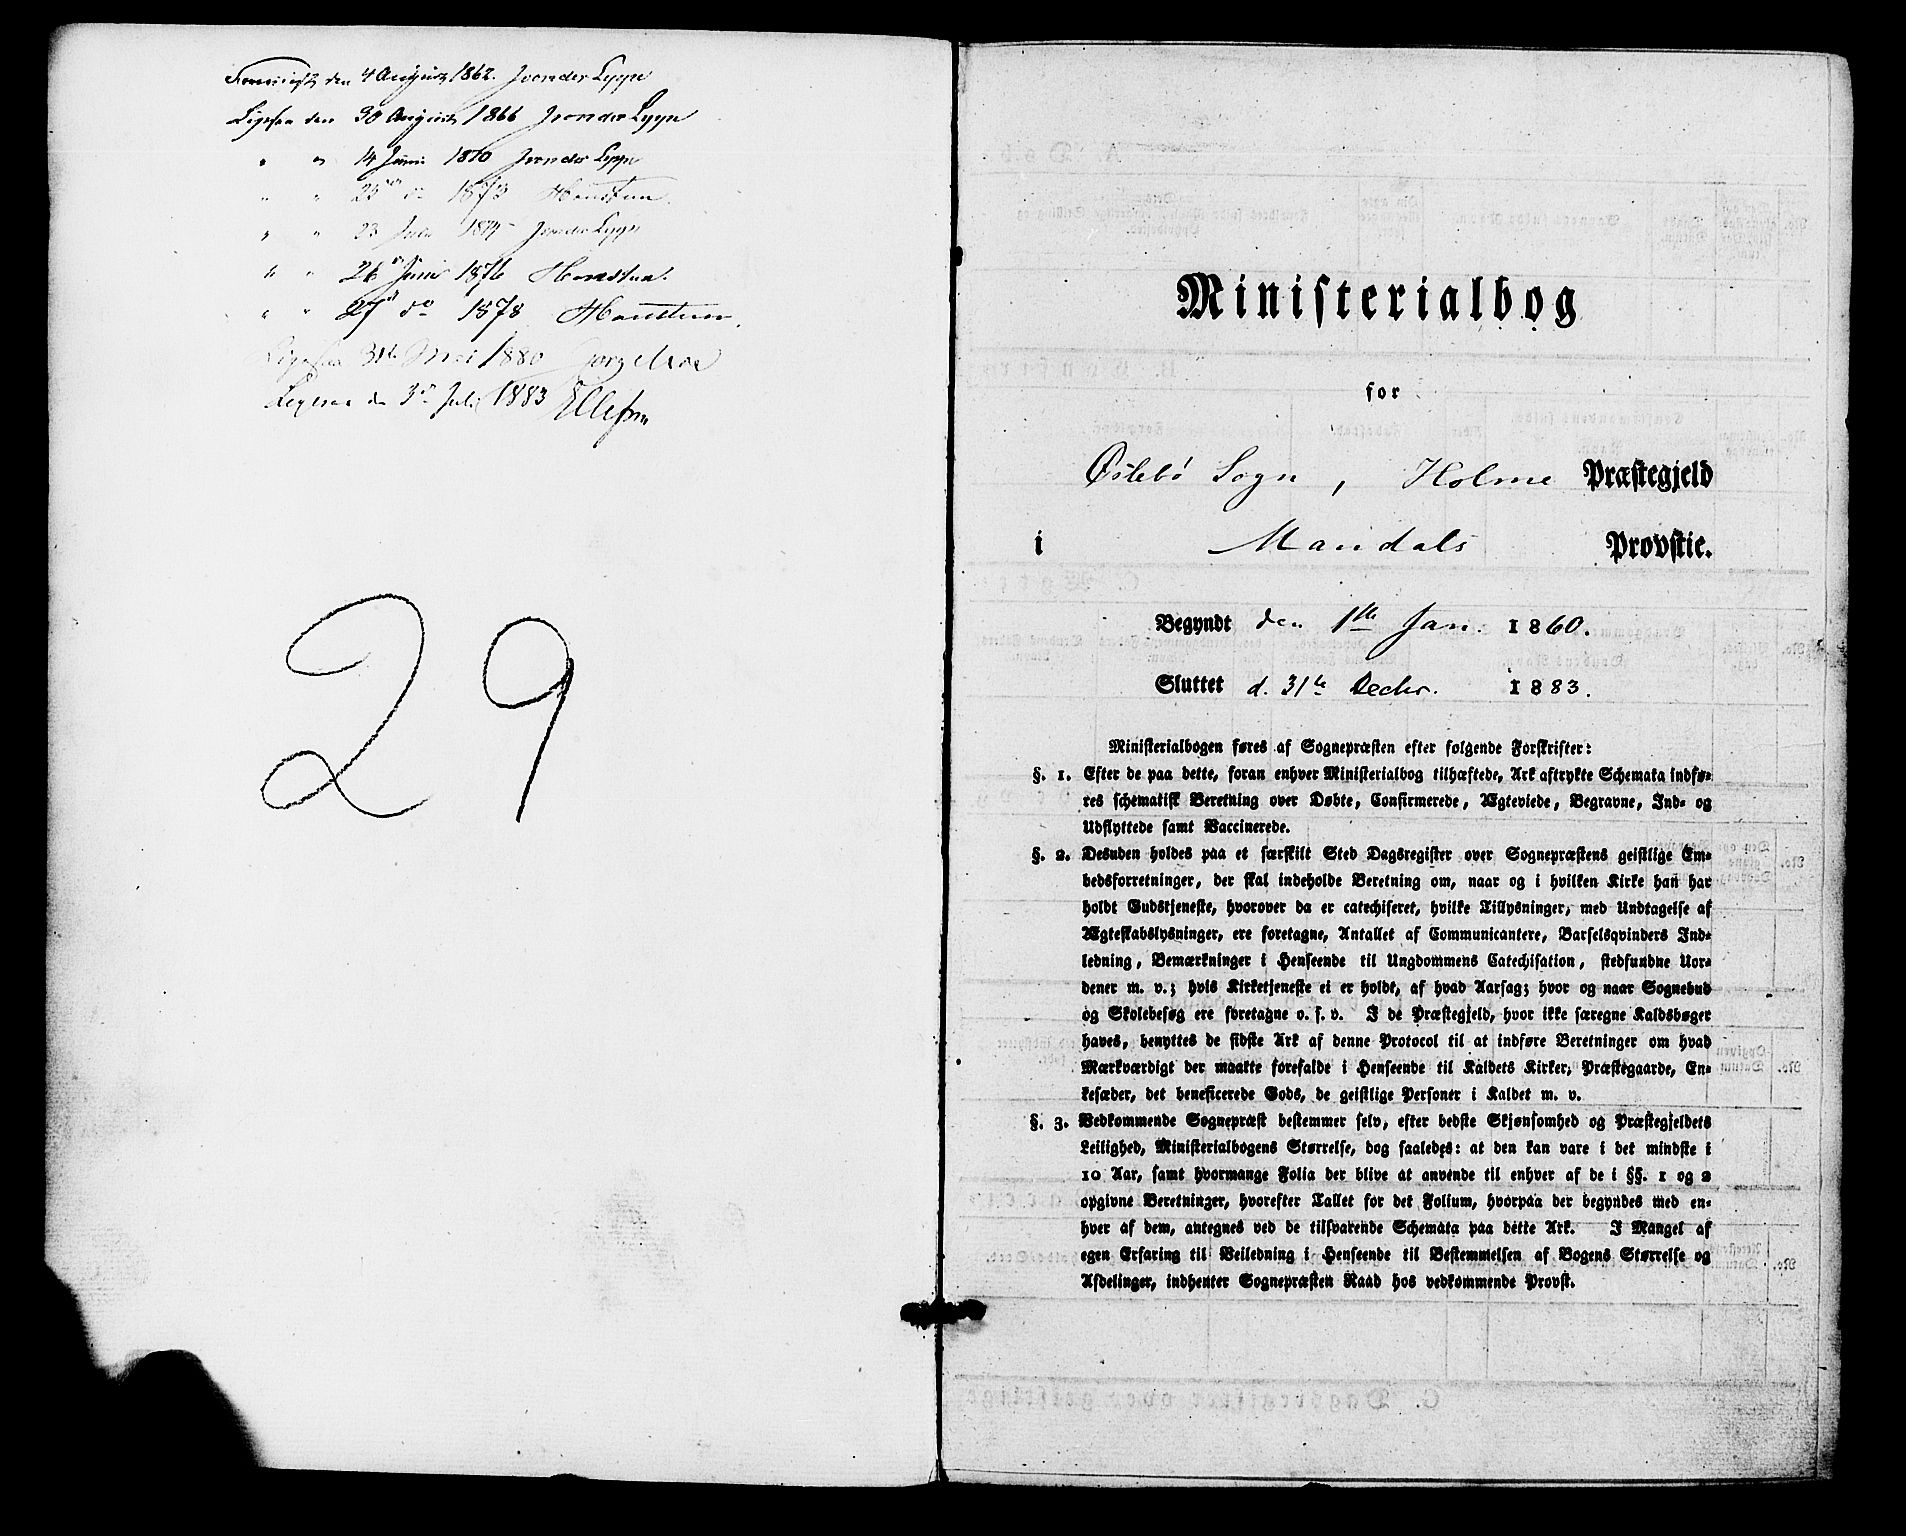 Fremvist den 4 August 1862. J von der Lippe
Ligesaa den 30 August 1866 J von der Lippe
" " 14 Juni 1870 J von der Lippe
" " 25 do 1873
" " 23 Juli 187 J von der Lippe
" " 26 Juni 1876
" " 27 do 1878
Ligesaa 31te Mai 1880 Jørg. Moe
Ligesaa d 3die Juli 1883 Ellefsen
29
Ministerialbog
for
Øslebø Sogn, Holme Præstegjeld
i Mandals Provstie.
Begyndt den 1ste Jan. 1860.
Sluttet d. 31te Decbr. 1883.
Ministerialbogen føres af Sognepræsten efter følgende Forskrifter:
§. 1. Efter de paa dette, foran enhver Ministerialbog tilhæftede, Ark aftrykte Schemata indfø-
res schematisk Beretning over Døbte, Confirmerede, Ægteviede, Begravne, Ind- og
Udflyttede samt Vaccinerede.
§. 2. Desuden holdes paa et særskilt Sted Dagsregister over Sognepræstens geistlige Em-
bedsforretninger, der skal indeholde Beretning om, naar og i hvilken Kirke han har
holdt Gudstjeneste, hvorover da er catechiseret, hvilke Tillysninger, med Undtagelse af
Ægteskabslysninger, ere foretagne, Antallet af Communicantere, Barselsqvinders Ind-
ledning, Bemærkninger i Henseende til Ungdommens Catechisation, stedfundne Uor-
dener m. v.; hvis Kirketjeneste ei er holdt, af hvad Aarsag; hvor og naar Sognebud
og Skolebesøg ere foretagne o. s. v. I de Præstegjeld, hvor ikke særegne Kaldsbøger
haves, benyttes de sidste Ark af denne Protocol til at indføre Beretninger om hvad
Mærkværdigt der maatte forefalde i Henseende til Kaldets Kirker, Præstegaarde, En-
kesæder, det beneficerede Gods, de geistlige Personer i Kaldet m. v.
§. 3. Vedkommende Sognepræst bestemmer selv, efter bedste Skjønsomhed og Præstegjeldets
Leilighed, Ministerialbogens Størrelse, dog saaledes: at den kan vare i det mindste i
10 Aar, samt hvormange Folia der blive at anvende til enhver af de i §§. 1 og 2
opgivne Beretninger, hvorefter Tallet for det Folium, hvorpaa der begyndes med en-
hver af dem, antegnes ved de tilsvarende Schemata paa dette Ark. I Mangel af
egen Erfaring til Veiledning i Henseende til Bestemmelsen af Bogens Størrelse og
Afdelinger, indhenter Sognepræsten Raad hos vedkommende Provst.